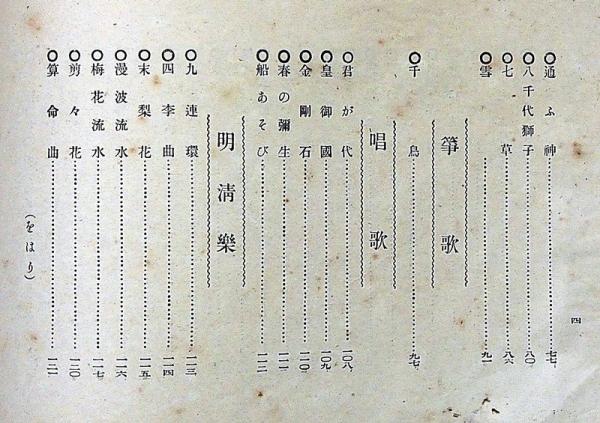 四
○通ふ神………七七
○八千代獅子………八〇
○七草………八六
○雪………九一
箏歌
○千鳥………九七
唱歌
○君が代………一〇八
○皇御國………一〇九
○金剛石………一一〇
○春の彌生………一一一
○船あそび………一一二
明淸樂
○九連環………一一三
○四李曲………一一四
○末梨花………一一五
○漫波流水………一一六
○梅花流水………一一七
○剪々花………一二〇
○算命曲………一二一
(をはり)